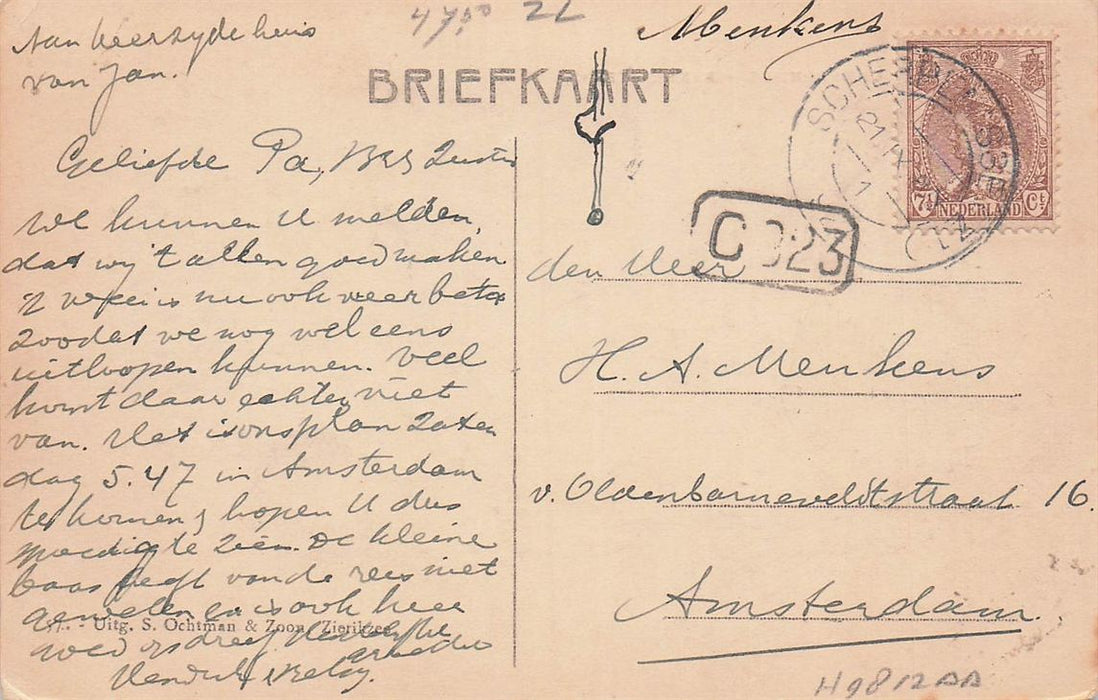 4750 2L
Menkens
Aan keerzijde huis
van Jan.
BRIEFKAART
Geliefde Pa, Zuster
We kunnen U melden,
dat wij 't allen goed maken
is nu ook weer beter
zoodat we nog wel eens
uitloopen kunnen. Veel
komt daar echter niet
van. Het is ons plan Zater
dag 5.47 in Amsterdam
te komen hopen U dus
spoedig te zien. De kleine
baas heeft van de reis niet
geweten en is ook heel
goed
Hendrik
77. - Uitg. S. Ochtman & Zoon, Zierikzee
7½ NEDERLAND Ct
C 023
den Heer
H. A. Menkens
v. Oldenbarneveldtstraat 16.
Amsterdam.
H9812AA